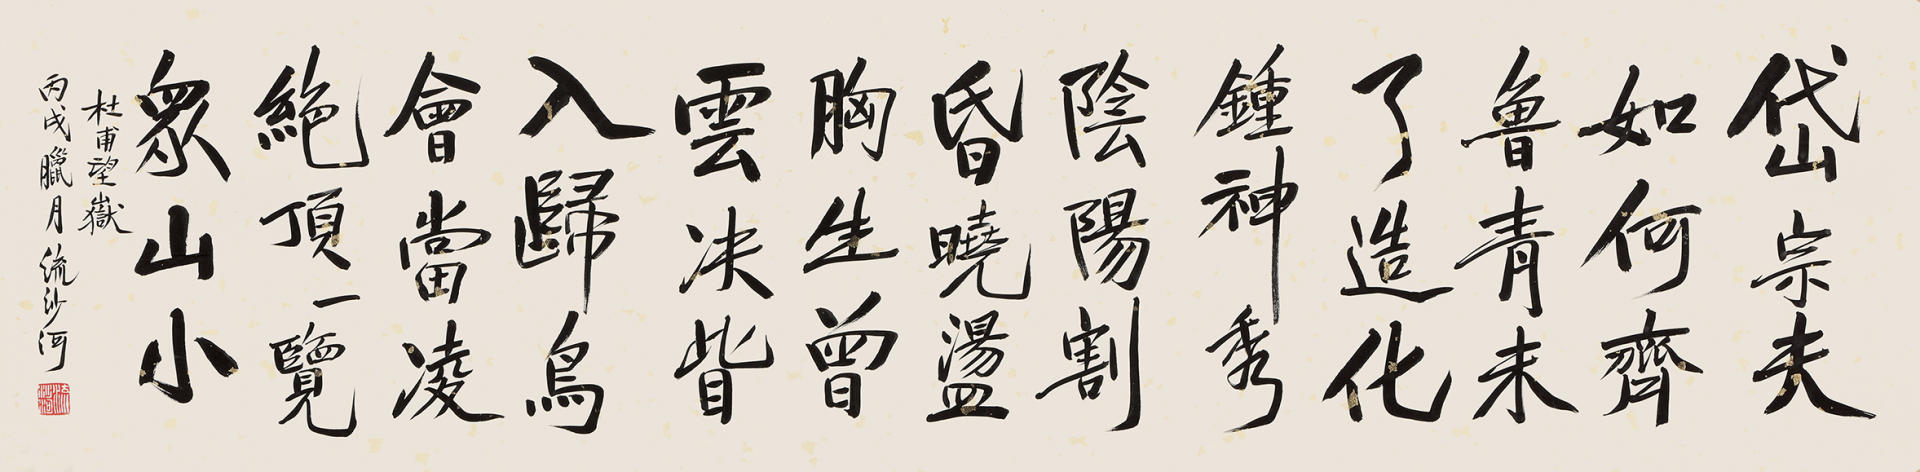 岱宗夫
如何齊
魯青未
了造化
鍾神秀
陰陽割
昏曉盪
胸生曾
雲决眥
入歸鳥
會當凌
絶頂一覽
眾山小
杜甫望嶽
丙戌臘月 流沙河